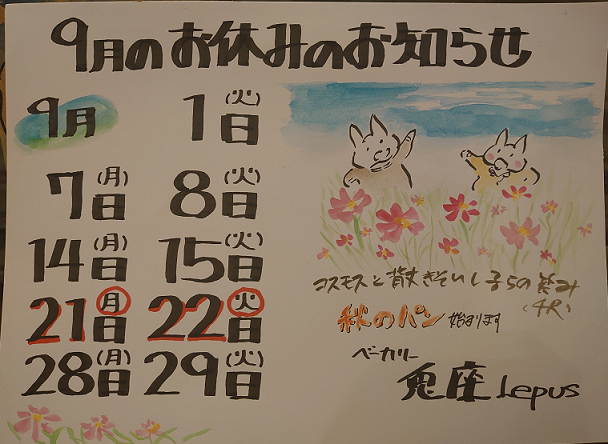 9月のお休みのお知らせ
9月 1日(火)
7日(月) 8日(火)
14日(月) 15日(火)
21日(月) 22日(火)
28日(月) 29日(火)
コスモスと
子らの笑み
秋のパン 始まります
ベーカリー
兎座 Lepus